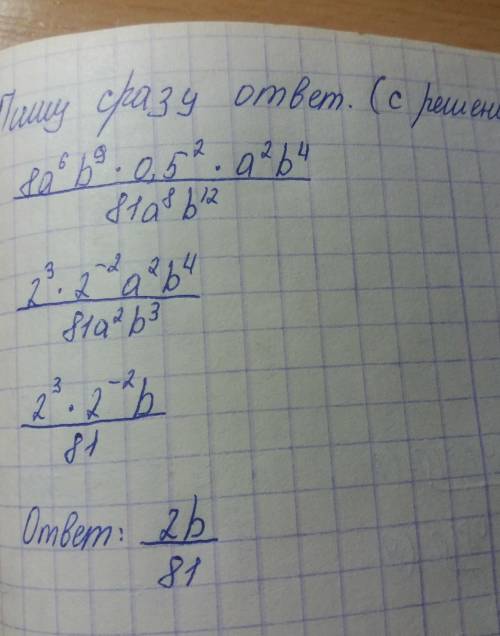 Пишу сразу ответ. (с решени
8a⁶b⁹ · 0,5² · a²b⁴
81a⁸b¹²
2³ · 2⁻² a²b⁴
81a²b³
2³ · 2⁻² b
81
Ответ: 2b
81